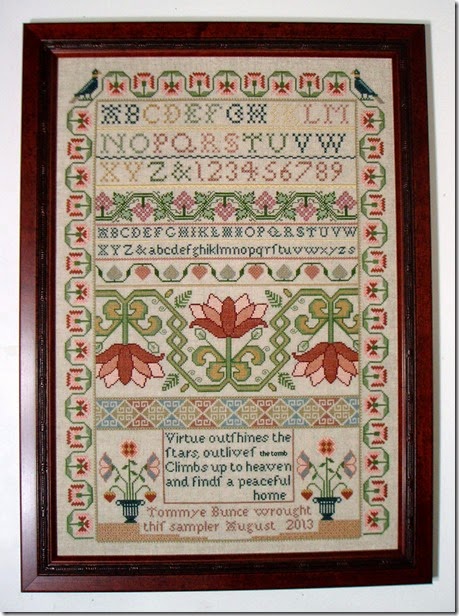 ABCDEFGHIKLM
NOPQRSTUVW
XYZ&123456789
ABCDEFGHIKLMNOPQRSTUVW
XYZ&abcdefghiklmnopqrſtuvwxyzs
Virtue outſhines the
ſtars, outliveſ the tomb
Climbs up to heaven
and findſ a peaceful
home
Tommye Bunce wrought
thiſ sampler August 2013